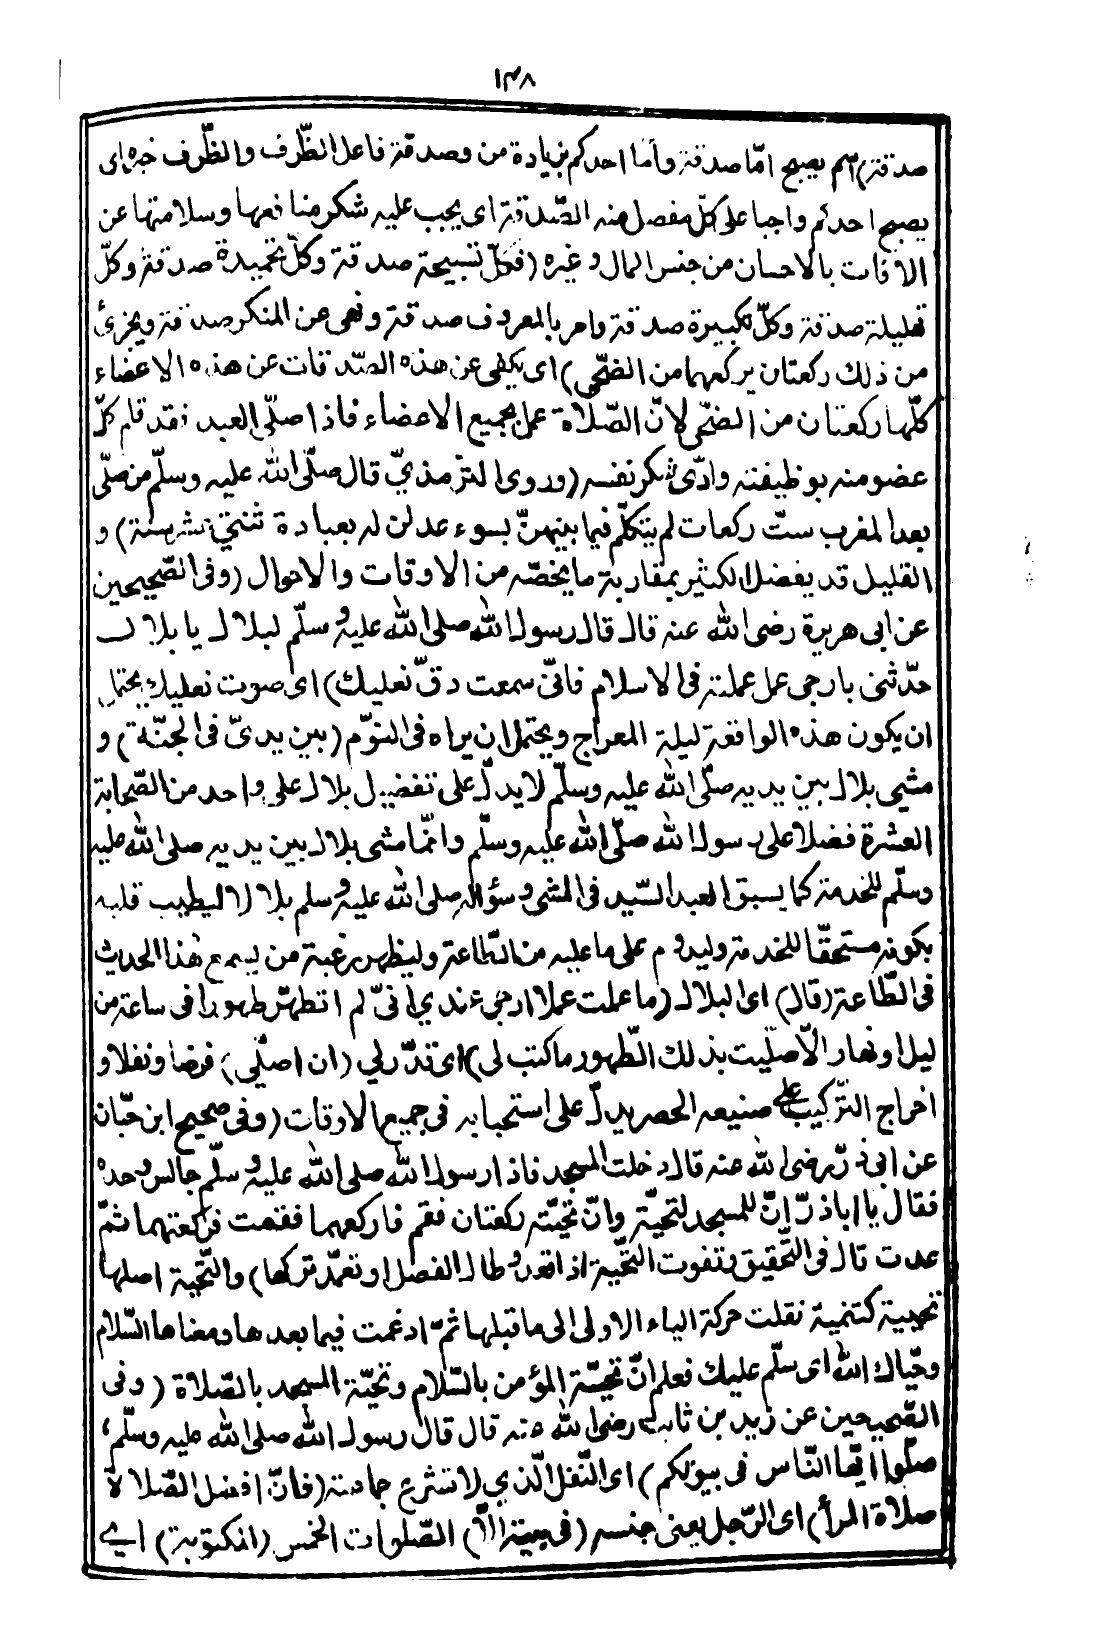 ١٣٨
صدقة) اسم يصبح امّا صدقة وأما احدكم بزيادة من وصدقة فاعل الظّرف والظّرف خبره اى
يصبح احدكم واجبا على كلّ مفصل منه الصّدقة اى يجب عليه شكر منافعها وسلامتها عن
الافات بالاحسان من جنس المال وغيره (فكلّ تسبيحة صدقة وكلّ تحميدة صدقة وكلّ
تهليلة صدقة وكلّ تكبيرة صدقة وامر بالمعروف صدقة ونهى عن المنكر صدقة ويجزئ
من ذلك ركعتان يركعهما من الضّحى) اى يكفى عن هذه الصّدقات عن هذه الاعضاء
كلّها ركعتان من الضحى لانّ الصّلاة عمل بجميع الاعضاء فاذا صلّى العبد فقد قام كلّ
عضو منه بوظيفته وادّى شكر نفسه (وروى الترمذيّ قال صلّى الله عليه وسلّم من صلّى
بعد المغرب ستّ ركعات لم يتكلّم فيما بينهنّ بسوء عدلن له بعبادة ثنتى عشرة سنة) و
القليل قد يفضل الكثير بمقاربة ما يخصّه من الاوقات والاحوال (وفى الصّحيحين
عن ابى هريرة رضى الله عنه قال قال رسول الله صلى الله عليه وسلّم لبلال يا بلال
حدّثنى بارجى عمل عملته فى الاسلام فانّى سمعت دقّ نعليك) اى صوت نعليك يحتمل
ان يكون هذه الواقعة ليلة المعراج ويحتمل ان يراه فى النوّم (بين يدىّ فى الجنّة) و
مشى بلال بين يديه صلّى الله عليه وسلّم لا يدلّ على تفضيل بلال على واحد من الصّحابة
العشرة فضلا على رسول الله صلّى الله عليه وسلّم وانّما مشى بلال بين يديه صلى الله عليه
وسلّم للخدمة كما يسبق العبد السّيد فى المشى وسؤاله صلى الله عليه وسلم بلالا ليطيب قلبه
بكونه مستحقّا للخدمة وليدوم على ما عليه من الطّاعة وليظهر رغبة من يسمع هذا الحديث
فى الطّاعة (قال) اى لبلال (ما عملت عملا ارجى عندي انّى لم اتطهّر طهورا فى ساعة من
ليل او نهار الاّ صلّيت بذلك الطّهور ما كتب لى) اى قدّر لي (ان اصلّى) فرضا ونفلا و
اخراج التّركيب على صنيعه الحصر يدلّ على استحبابه فى جميع الاوقات (وفى صحيح ابن حبّان
عن ابى ذرّ رضى الله عنه قال دخلت المسجد فاذا رسول الله صلى الله عليه وسلّم جالس وحده
فقال يا اباذرّ انّ للمسجد لتحيّة وانّ تحيّته ركعتان فقم فاركعهما فقمت فركعتهما ثمّ
عدت قال فى التّحقيق وتفوت التّحيّة اذا قعد وطال الفصل او تعمّد تركها) والتّحية اصلها
تحيية كتنمية نقلت حركة الياء الاولى الى ما قبلها ثمّ ادغمت فيما بعدها ومعناها السّلام
وحيّاك الله اى سلّم عليك فعلم انّ تحيّة المؤمن بالسّلام وتحيّة المسجد بالصّلاة (وفى
الصّحيحين عن زيد بن ثابت رضى الله عنه قال قال رسول الله صلى الله عليه وسلّم
صلّوا ايّها النّاس فى بيوتكم) اى النّفل الّذي لا تشرع جماعته (فانّ افضل الصّلاة
صلاة المرأ) اى الرّجل يعنى جنسه (فى بيته الاّ) الصّلوات الخمس (المكتوبة) اي